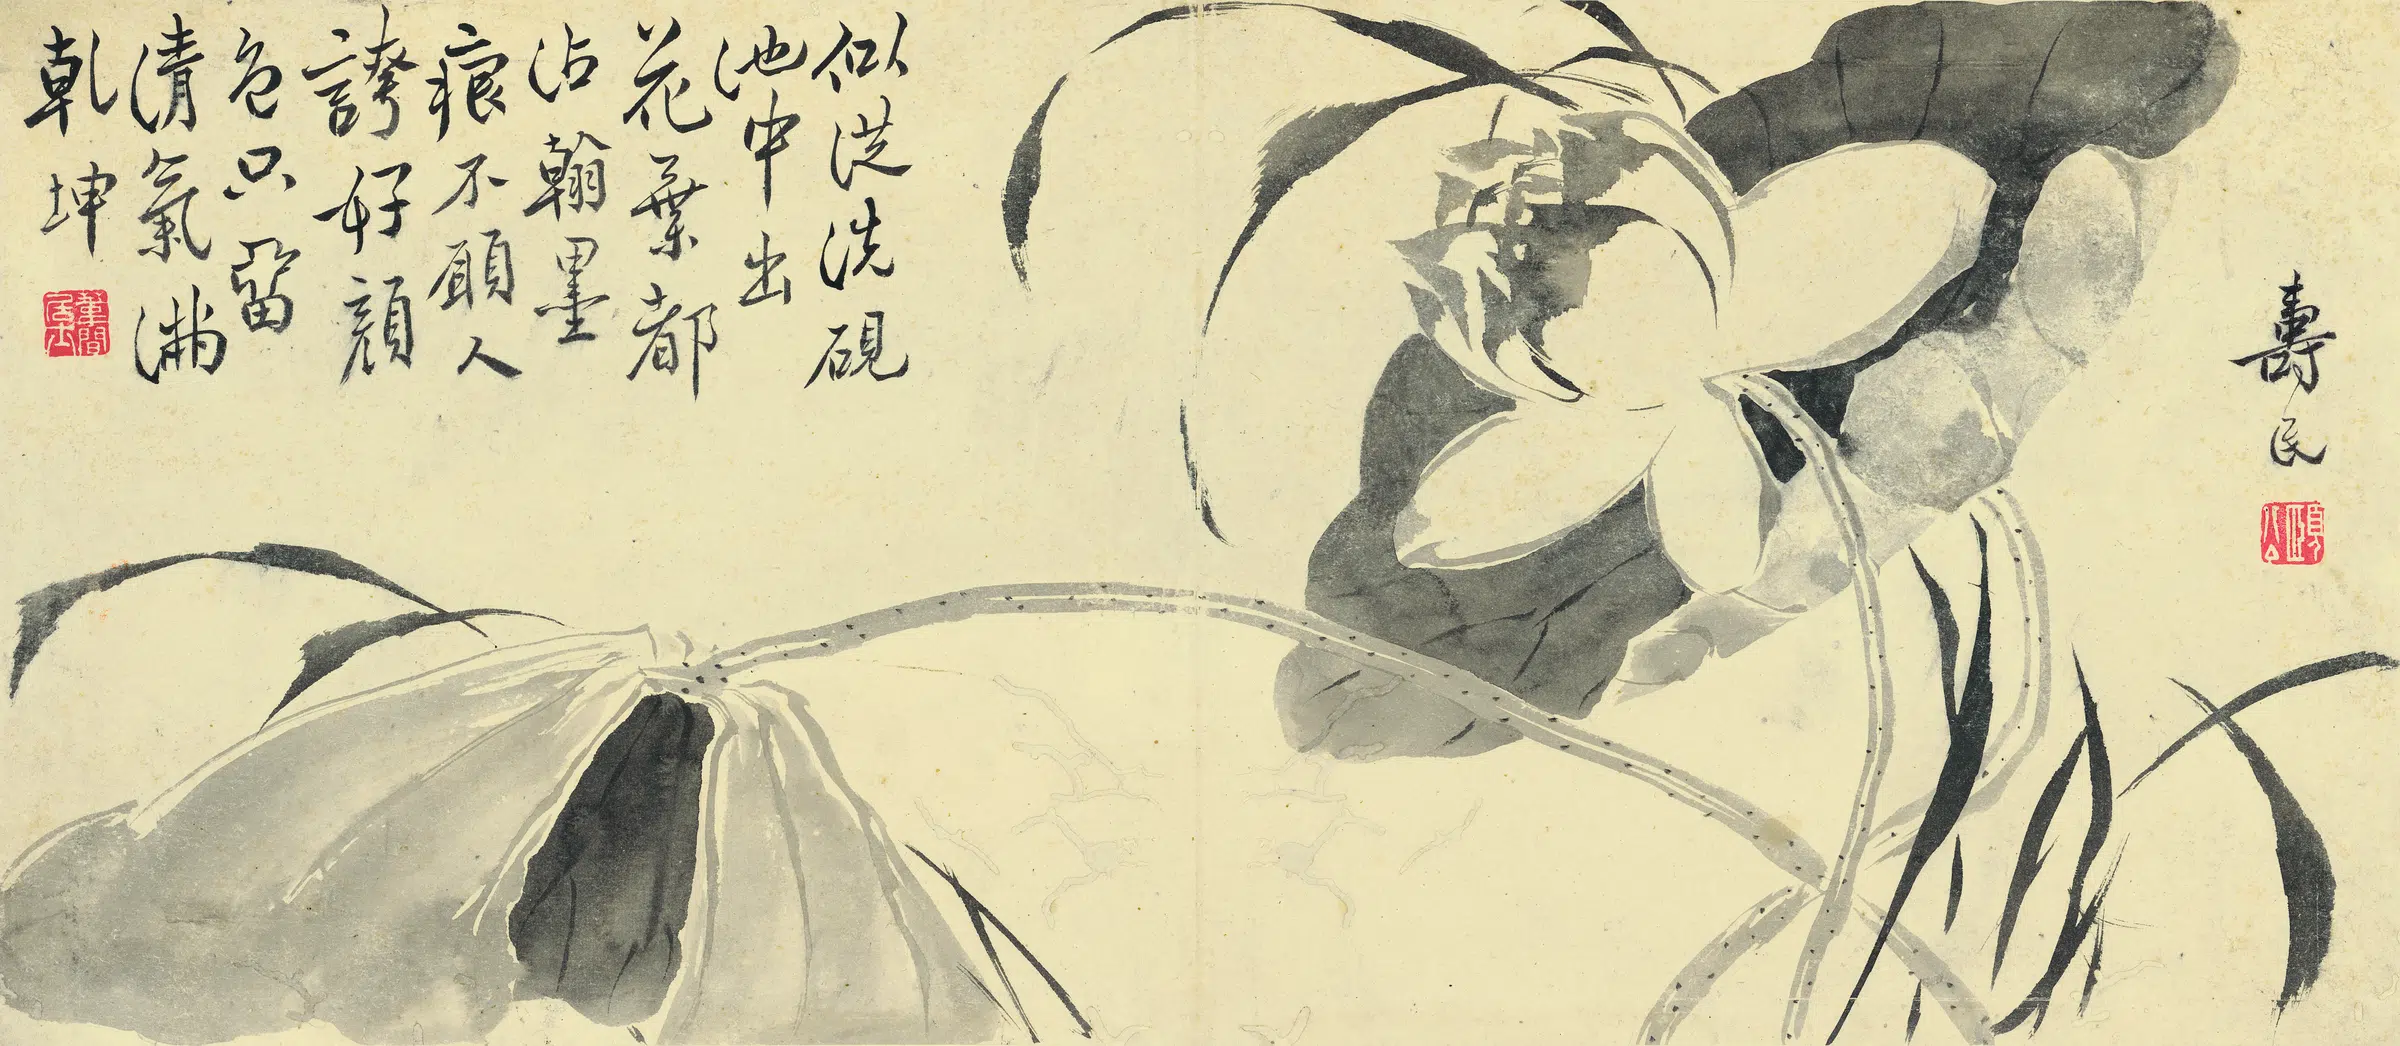 壽民
頤公
似從洗硯
池中出
花葉都
沾翰墨
痕不願人
誇好顔
色只留
清氣滿
乾坤
葦間居士